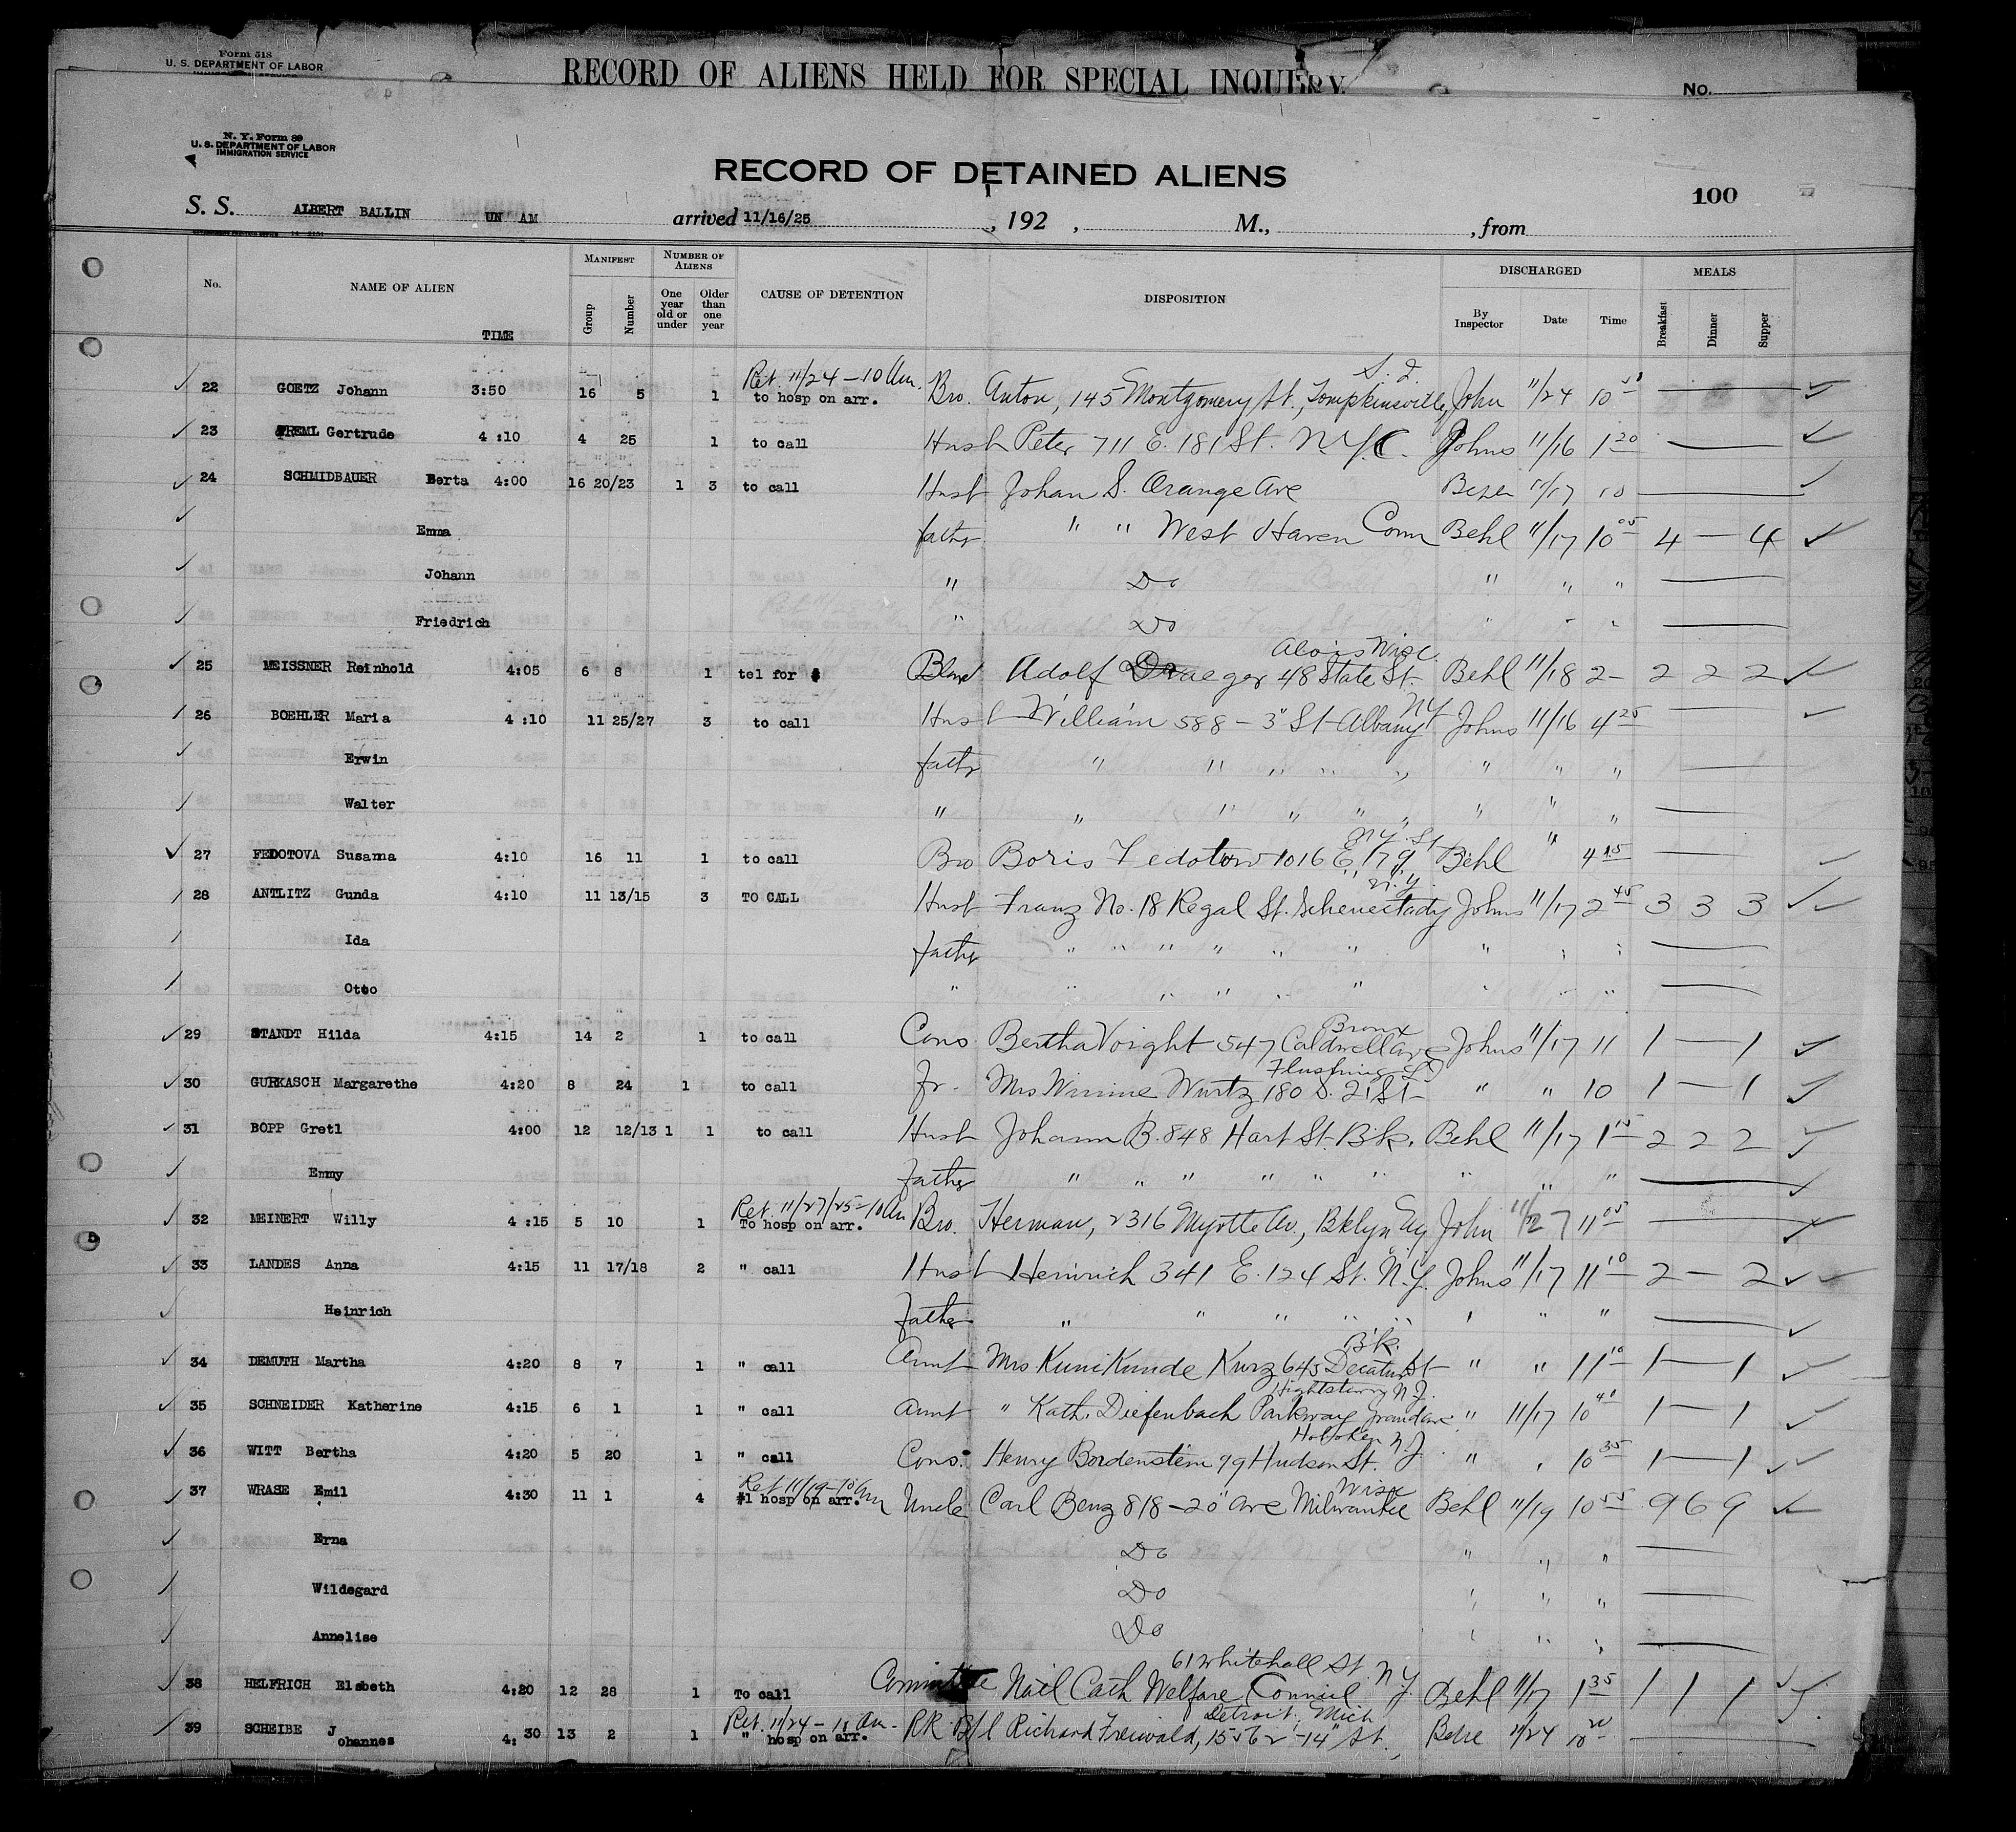 Form 518
U. S. DEPARTMENT OF LABOR
RECORD OF ALIENS HELD FOR SPECIAL INQUIRY
No.
N. Y. Form 89
U. S. DEPARTMENT OF LABOR
IMMIGRATION SERVICE
RECORD OF DETAINED ALIENS
100
S. S. ALBERT BALLIN UN AM arrived 11/16/25, 192 , M., , from
No. NAME OF ALIEN TIME MANIFEST Group Number NUMBER OF ALIENS One year old or under Older than one year CAUSE OF DETENTION DISPOSITION DISCHARGED By Inspector Date Time MEALS Breakfast Dinner Supper
22 GOETZ Johann 3:50 16 5 1 Ret. 11/24 - 10 Am. to hosp on arr. Bro. Anton, 145 Montgomery St., Tompkinsville, S. I. John 11/24 10
23 TREML Gertrude 4:10 4 25 1 to call Husb Peter 711 E. 181 St. N.Y.C. Johns 11/16 1 20
24 SCHMIDBAUER Berta 4:00 16 20/23 1 3 to call Husb Johan S. Orange Ave 11/17 10
Emma father " " West Haven Conn Behl 11/17 10 05 4 — 4
Johann " Do " " "
Friedrich " Do " " "
25 MEISSNER Reinhold 4:05 6 8 1 tel for $ Adolf Draeger 48 State St. Wisc. Behl 11/18 2 — 2 2 2
26 BOEHLER Maria 4:10 11 25/27 3 to call Husb William 588 - 3" St Albany NY Johns 11/16 4 25
Erwin father " " " " " " " "
Walter " " " " " " " " "
27 FEDOTOVA Susanna 4:10 16 11 1 to call Bro Boris Fedotow 1016 E 179 St N.Y. Behl " 4 15
28 ANTLITZ Gunda 4:10 11 13/15 3 TO CALL Husb Franz No. 18 Regal St. Schenectady N.Y. Johns 11/17 2 45 3 3 3
Ida father " " " " " " " " "
Otto " " " " " " " " "
29 STANDT Hilda 4:15 14 2 1 to call Cons. Bertha Voight 547 Caldwell Ave Bronx Johns 11/17 11 1 — 1
30 GURKASCH Margarethe 4:20 8 24 1 to call Fr. Mrs Winnie Wurtz 180 S. 21 St Flushing L I " " 10 1 — 1
31 BOPP Gretl 4:00 12 12/13 1 1 to call Husb Johann B. 848 Hart St. Bk. Behl 11/17 1 15 2 2 2
Emmy father " " " " " " " " "
32 MEINERT Willy 4:15 5 10 1 Ret. 11/27/25 - 10 Am To hosp on arr. Bro. Herman, 2316 Myrtle Av., Bklyn Ny John 11/27 11 05
33 LANDES Anna 4:15 11 17/18 2 " call Husb Heinrich 341 E. 124 St. N.Y. Johns 11/17 11 10 2 — 2
Heinrich father " " " " " " "
34 DEMUTH Martha 4:20 8 7 1 " call Aunt Mrs Kunikunde Kurz 645 Decatur St Bk. " " 11 10 1 — 1
35 SCHNEIDER Katherine 4:15 6 1 1 " call Aunt " Kath. Diefenbach Parkway Grand Ave Hightstown N.J. " 11/17 10 40 1 — 1
36 WITT Bertha 4:20 5 20 1 " call Cons. Henry Bordenstein 79 Hudson St. Hoboken N.J. " " 10 35 1 — 1
37 WRASE Emil 4:30 11 1 4 Ret 11/19 - 10 Am #1 hosp on arr. Uncle Carl Benz 818 - 20" Ave Milwaukee Wisc Behl 11/19 10 55 9 6 9
Erna Do " " "
Wildegard Do " " "
Annelise Do " " "
38 HELFRICH Elsbeth 4:20 12 28 1 To call Committee Natl Cath Welfare Council 61 Whitehall St. N.Y. Behl 11/17 1 35 1 1 1
39 SCHEIBE Johannes 4:30 13 2 1 Ret. 11/24 - 10 Am. " hosp on arr. RR B/l Richard Freiwald, 15562 - 14" St., Detroit, Mich 11/24 10 20